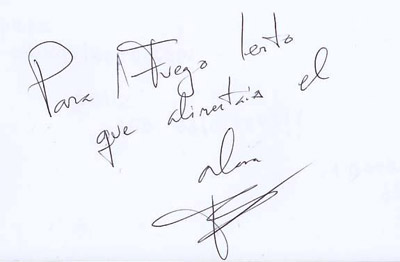 Para A Fuego lento
que alimentais el
alma